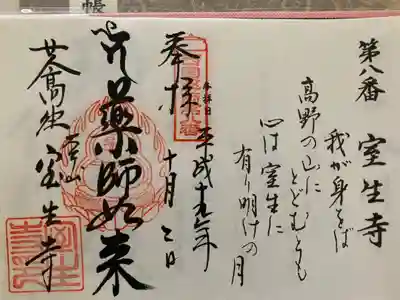 帳
第八番 室生寺
我が身をば
高野の山に
とどむとも
心は室生に
有り明けの月
奉拝
参拝日
平成十九年
十月二日
薬師如来
女人高野
室生寺